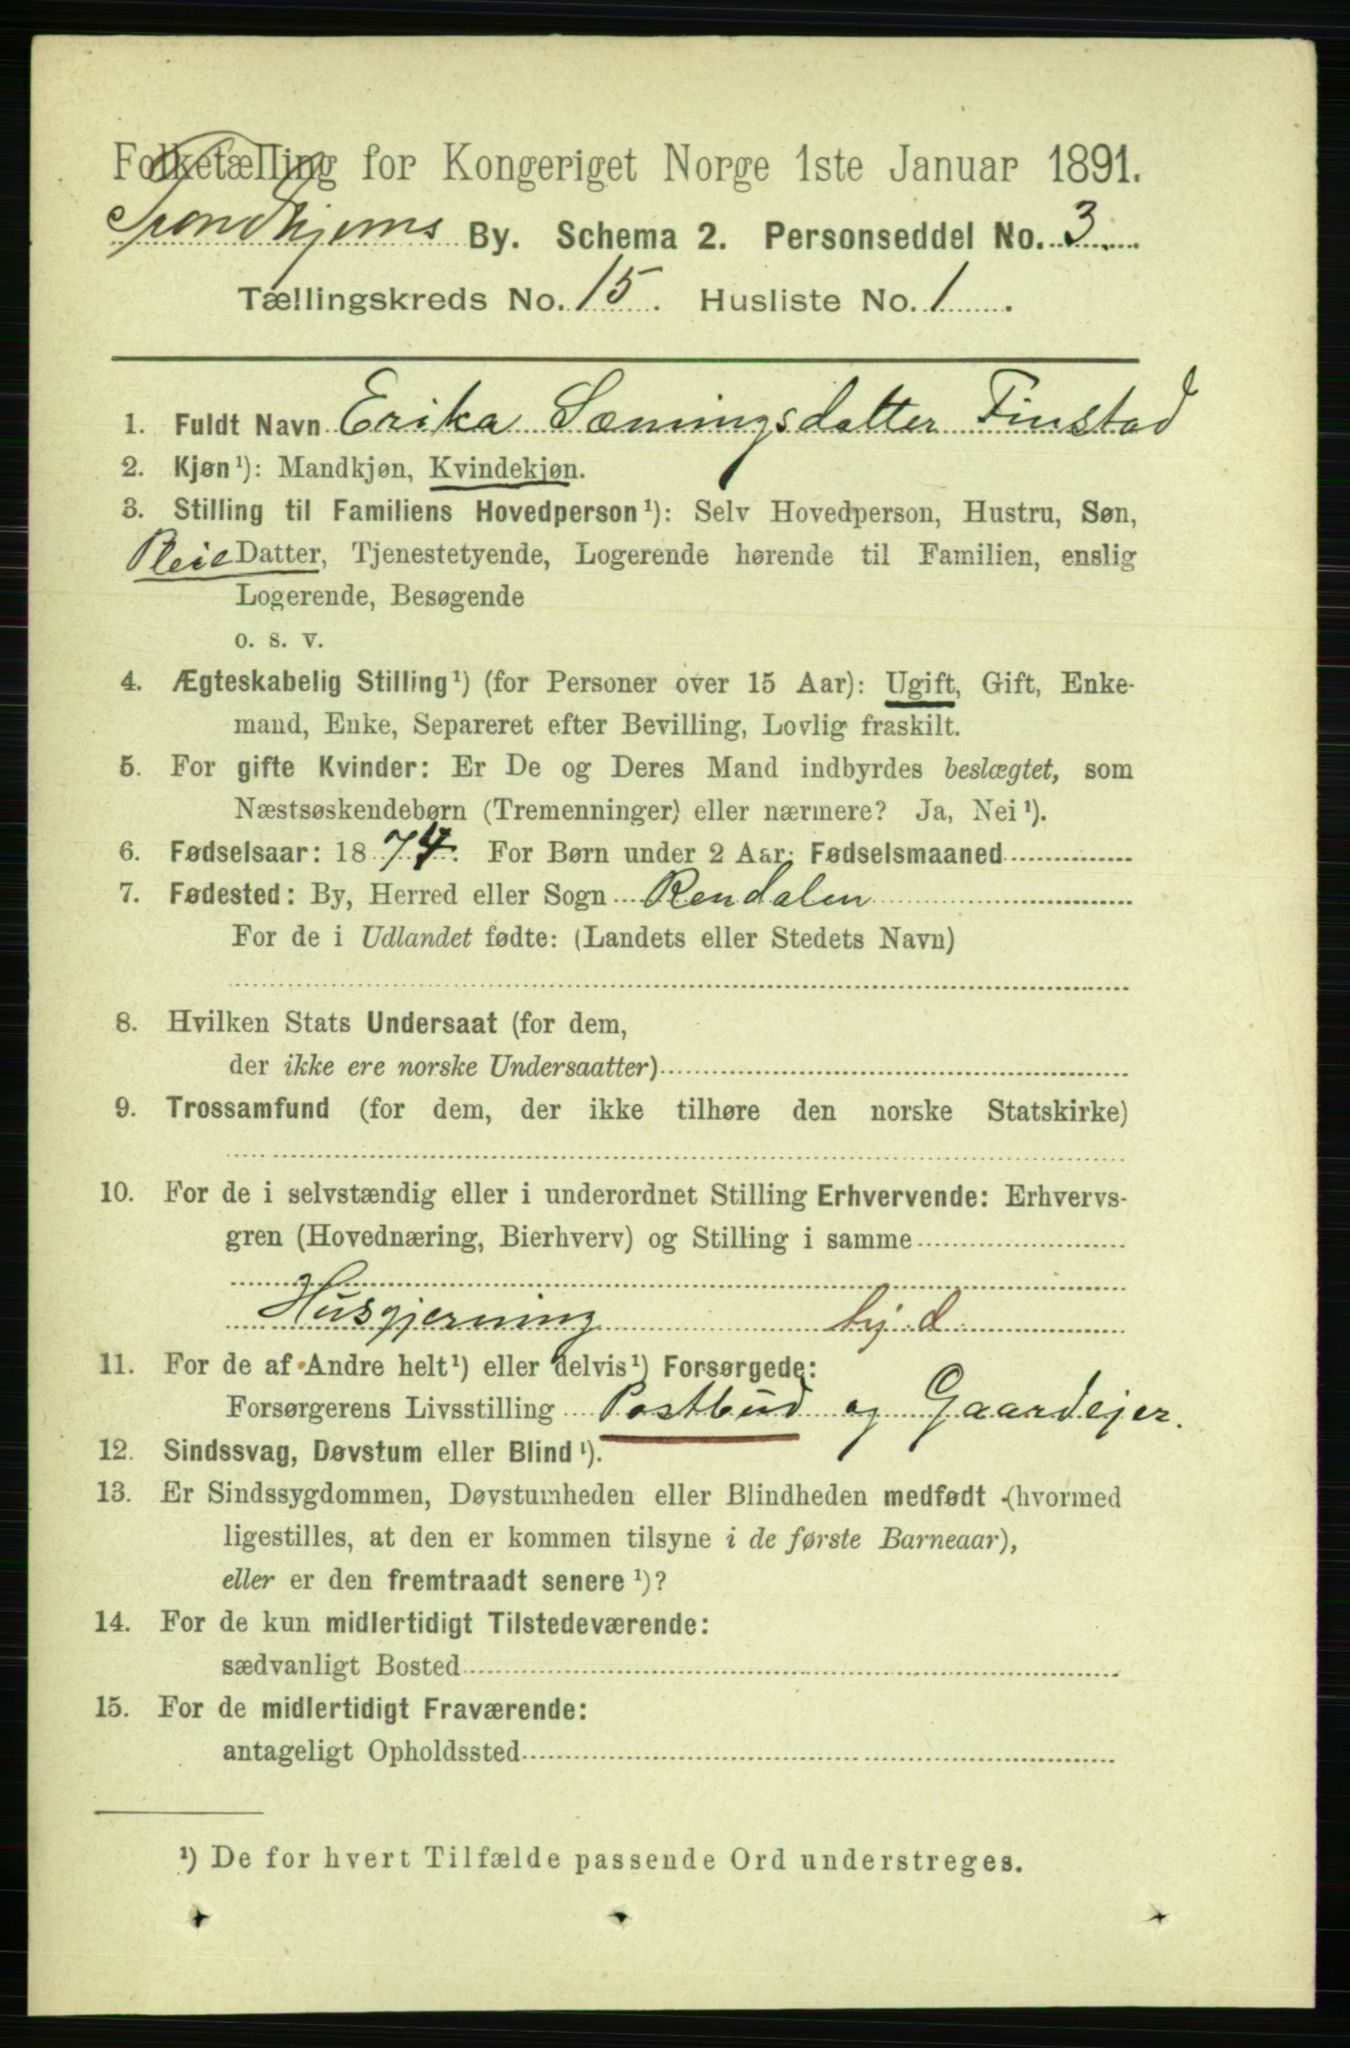 Folketælling for Kongeriget Norge 1ste Januar 1891.
Trondhjems By. Schema 2. Personseddel No. 3.
Tællingskreds No. 15. Husliste No. 1.
1. Fuldt Navn Erika Sæmingsdatter Finstad
2. Kjøn¹): Mandkjøn, Kvindekjøn.
3. Stilling til Familiens Hovedperson¹): Selv Hovedperson, Hustru, Søn,
Pleie Datter, Tjenestetyende, Logerende hørende til Familien, enslig
Logerende, Besøgende
o. s. v.
4. Ægteskabelig Stilling¹) (for Personer over 15 Aar): Ugift, Gift, Enke-
mand, Enke, Separeret efter Bevilling, Lovlig fraskilt.
5. For gifte Kvinder: Er De og Deres Mand indbyrdes beslægtet, som
Næstsøskendebørn (Tremenninger) eller nærmere? Ja, Nei¹).
6. Fødselsaar: 1874. For Børn under 2 Aar: Fødselsmaaned
7. Fødested: By, Herred eller Sogn Rendalen
For de i Udlandet fødte: (Landets eller Stedets Navn)
8. Hvilken Stats Undersaat (for dem,
der ikke ere norske Undersaatter)
9. Trossamfund (for dem, der ikke tilhøre den norske Statskirke)
10. For de i selvstændig eller i underordnet Stilling Erhvervende: Erhvervs-
gren (Hovednæring, Bierhverv) og Stilling i samme
Husgjerning hj. d
11. For de af Andre helt¹) eller delvis¹) Forsørgede:
Forsørgerens Livsstilling Postbud og Gaardejer.
12. Sindssvag, Døvstum eller Blind¹).
13. Er Sindssygdommen, Døvstumheden eller Blindheden medfødt (hvormed
ligestilles, at den er kommen tilsyne i de første Barneaar),
eller er den fremtraadt senere¹)?
14. For de kun midlertidigt Tilstedeværende:
sædvanligt Bosted
15. For de midlertidigt Fraværende:
antageligt Opholdssted
¹) De for hvert Tilfælde passende Ord understreges.